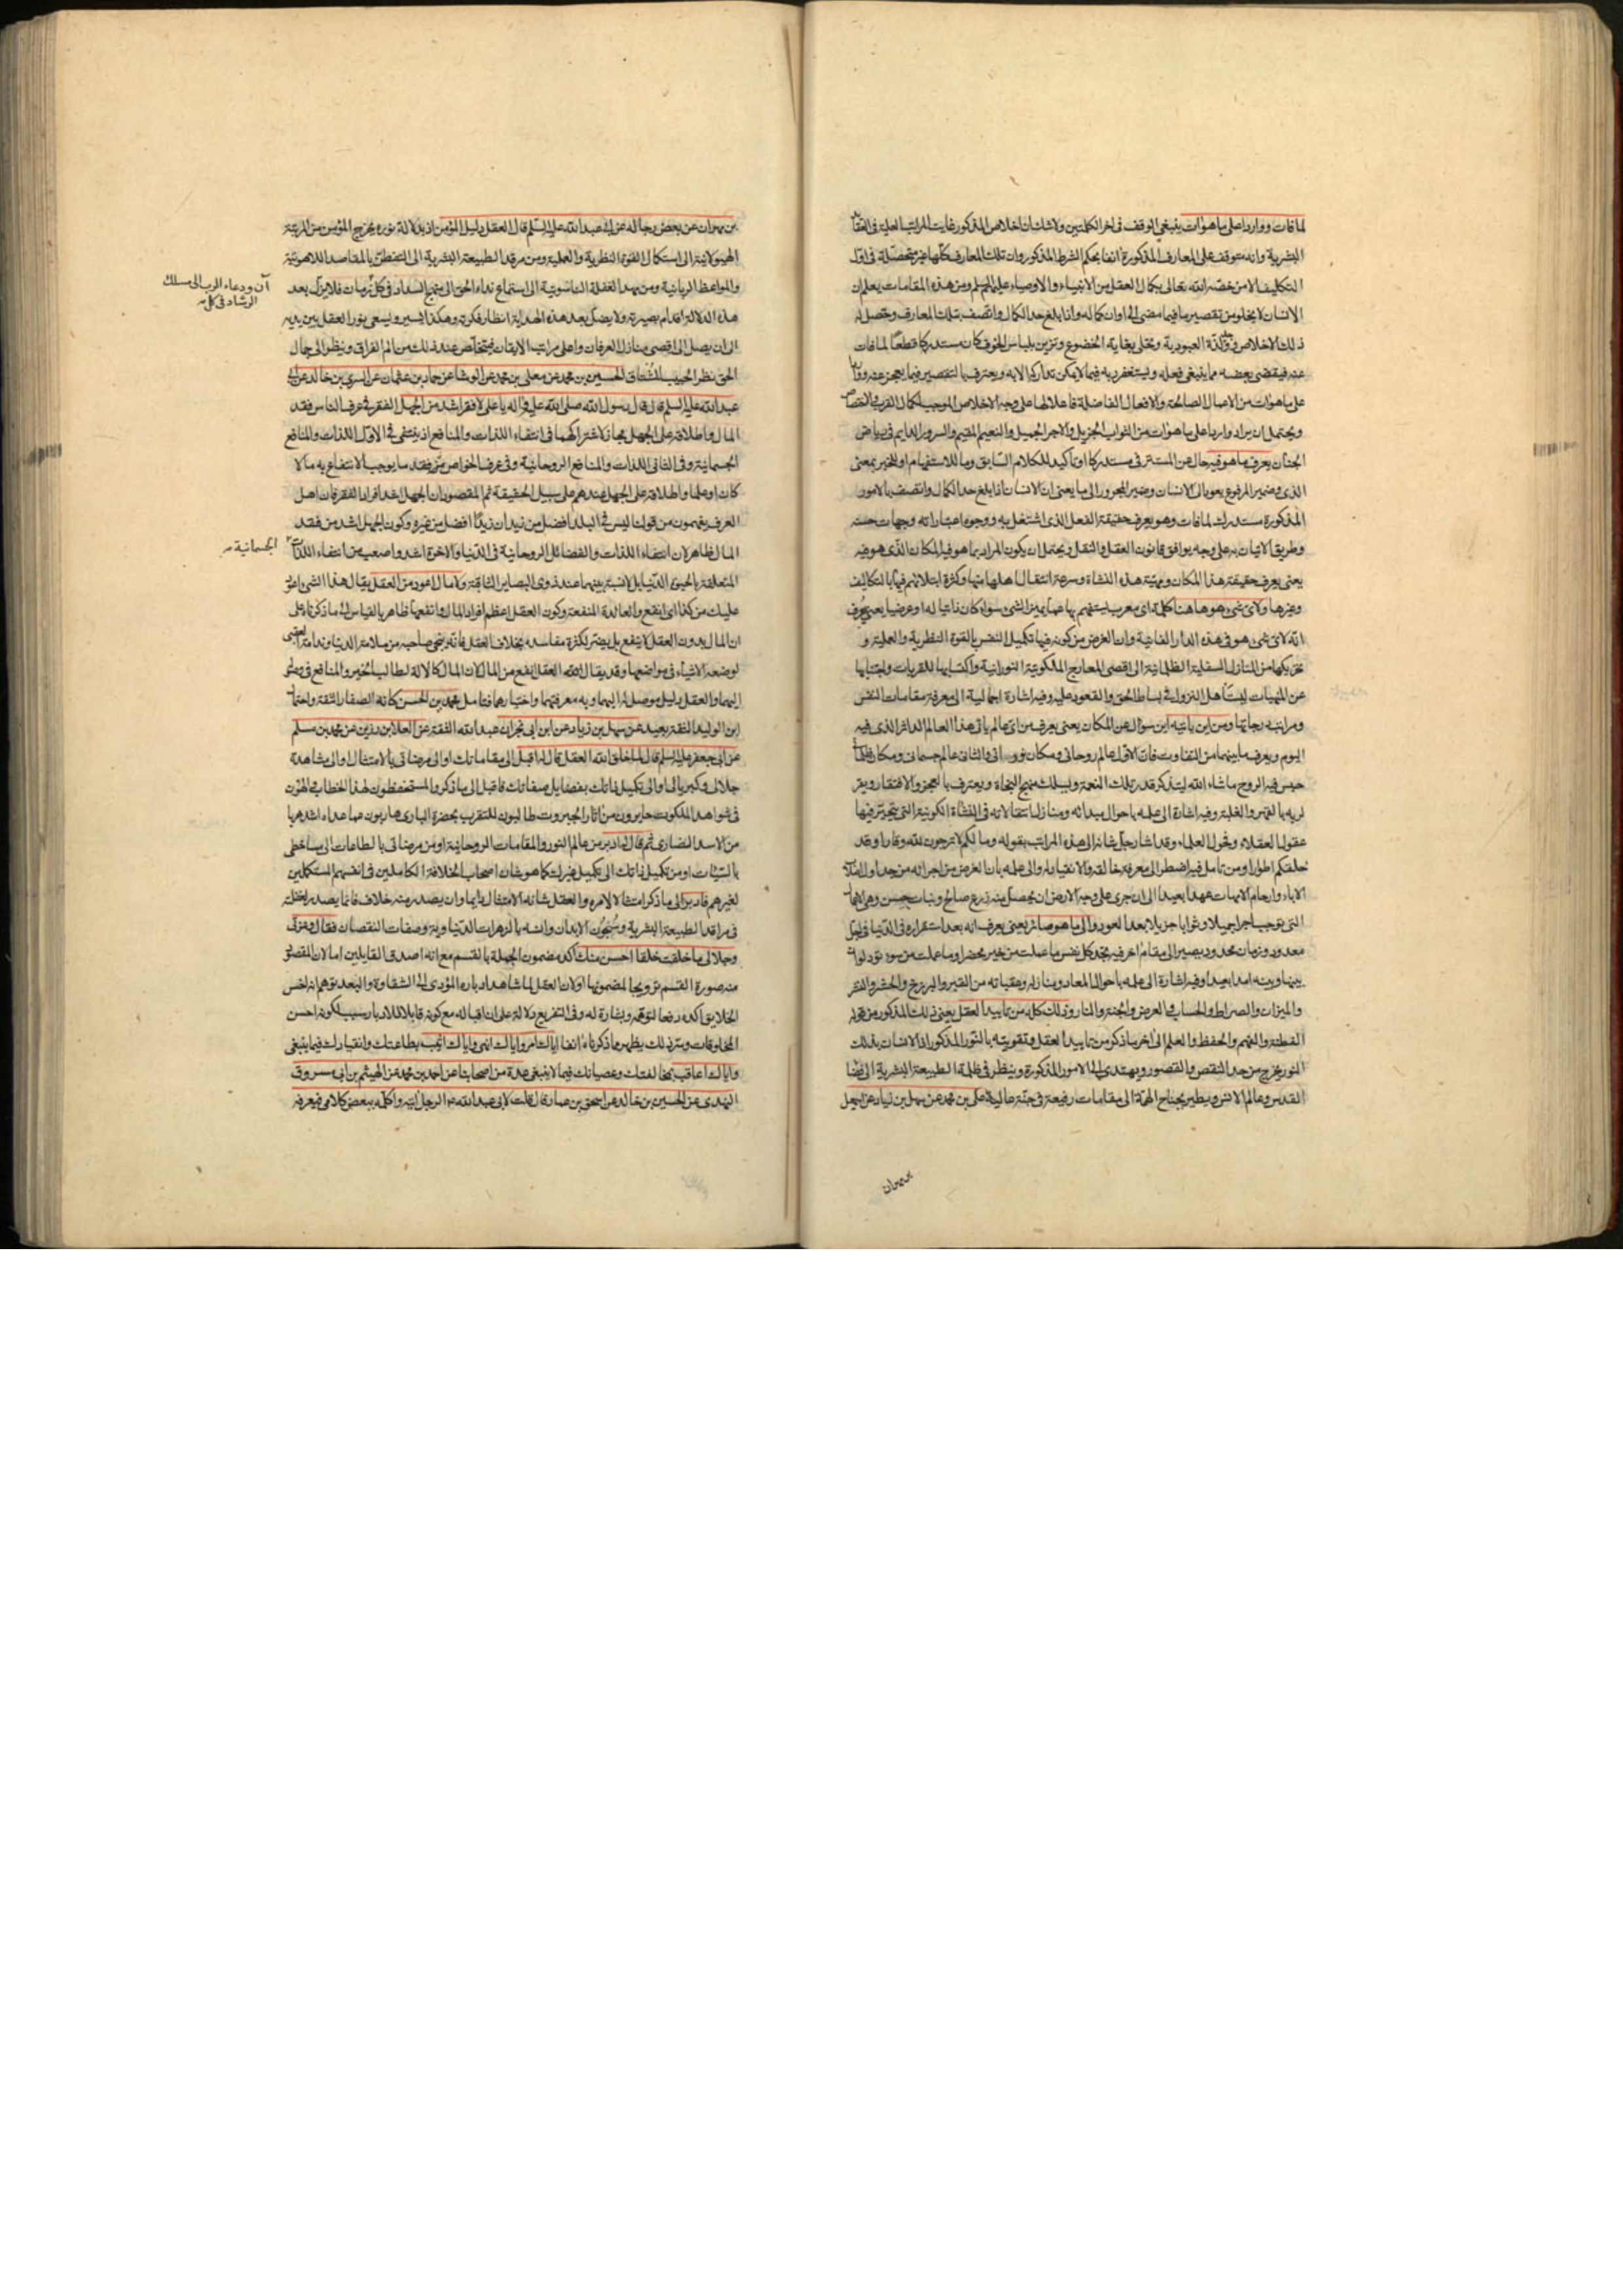 لما فات وواردا على ما هو آت ينبغي الوقف في اخر الكلمتين ولا شك ان اخلاص المذكور غايت المراتب العلية في العقا
البشرية وانه متوقف على المعارف المذكورة آنفا بحكم الشرط المذكور وان تلك المعارف كلها غير متحصلة في اول
التكليف الا من خصه الله تعالى بكمال العقل من الانبياء والاوصياء عليهم السلم ومن هذه المقامات يعلم ان
الانسان لا يخلو من تقصير ما فيما مضى الى اوان كماله واذا بلغ حد الكمال واتصف بتلك المعارف وحصل له
ذلك الاخلاص في ولذة العبودية وتحلى بغاية الخضوع وتزين بلباس الخوف كان مستدركا قطعا لما فات
عنه فيقضى بعضه مما ينبغي فعله ويستغفر ربه فيما لا يمكن تداركه الا به ويعترف بالتقصير فيما يعجز عنه ووا
على ما هو آت من الاعمال الصالحة والافعال الفاضلة فاعلا لها على وجه الاخلاص الموجب لكمال القرب والاختصاص
ويحتمل ان يراد واردا على ما هو آت من الثواب الجزيل والاجر الجميل والنعيم المقيم والسرور الدايم في رياض
الجنان يعرف ما هو فيه حال عن المستتر في مستدركا او تأكيد للكلام السابق وما للاستفهام او للخبر بمعنى
الذي وضمير المرفوع يعود الى الانسان وضمير المجرور الى ما يعنى ان الانسان اذا بلغ حد الكمال واتصف بالامور
المذكورة مستدرك لما فات وهو يعرف حقيقة الفعل الذي اشتغل به ووجوه اعتباراته وجهات حسنه
وطريق الاتيان به على وجه يوافق قانون العقل والنقل ويحتمل ان يكون المراد بما هو فيه المكان الذي هو فيه
يعنى يعرف حقيقة هذا المكان ومهية هذه النشاة وسرعة انتقال اهلها منها وكثرة ابتلائهم فيها بالتكاليف
وغيرها ولاى شيء هو هاهنا كلمة اى معرب يستفهم بها عما يميز الشيء سواء كان ذاتيا له او عرضيا يعنى يعرف
انه لاى شيء هو في هذه الدار الفانية وان الغرض من كونه فيها تكميل النفس بالقوة النظرية والعملية و
تحريكها من المنازل السفلية الظلمانية الى اقصى المعارج الملكوتية النورانية واكتسابها للقربات واجتنابها
عن المنهيات ليستأهل النزول في بساط الحق والقعود عليه وفيه اشارة اجمالية الى معرفة مقامات النفس
ومراتب درجاتها ومن اين ياتيه اين سؤال عن المكان يعنى يعرف من اى عالم ياتى هذا العالم الداثر الذي فيه
اليوم ويعرف ما بينهما من التفاوت فان الاول عالم روحاني ومكان نوراني والثاني عالم جسماني ومكان ظلما
حبس فيه الروح ما شاء الله ليتذكر قدر تلك النعمة ويسلك منهج النجاة ويعترف بالعجز والافتقار ويقر
لربه بالقهر والغلبة وفيه اشارة الى علمه باحوال مبدائه ومنازل انتقالاته في النشاة الكونية التي يتحير فيها
عقول العقلاء وفحول العلماء وقد اشار جل شانه الى هذه المراتب بقوله وما لكم لا ترجون لله وقارا وقد
خلقكم اطوارا ومن تامل فيه اضطر الى معرفة خالقه والانقياد له والى علمه بان الغرض من اجرائه من جداول اصلا
الاباء وارحام الامهات عهدا بعيدا الى ان جرى على وجه الارض ان يحصل منه زرع صالح ونبات حسن وهى الاعمال
التي توجب اجرا جميلا وثوابا جزيلا بعد العود والى ما هو صائر يعنى يعرف انه بعد استقراره في الدنيا في اجل
معدود وزمان محدود يصير الى مقام آخر فيه تجد كل نفس ما عملت من خير محضرا وما عملت من سوء تود لو ان
بينها وبينه امدا بعيدا وفيه اشارة الى علمه باحوال المعاد ومنازله وعقباته من القبر والبرزخ والحشر والنشر
والميزان والصراط والحساب والعرض والجنة والنار وذلك كله من تاييد العقل يعنى ذلك المذكور من قوله
الفطنة والفهم والحفظ والعلم الى اخر ما ذكر من تاييد العقل وتقويته بالنور المذكور اذ الانسان بذلك
النور يخرج من حد النقص والقصور ويهتدى الى الامور المذكورة وينظر في ظلمة الطبيعة البشرية الى فضا
القدس وعالم الانس ويطير بجناح الهمة الى مقامات رفيعة في جنة عالية على بن محمد عن سهل بن زياد عن اسمعيل
بن مهران
بن مهران عن بعض رجاله عن ابى عبد الله عليه السلم قال العقل دليل المؤمن اذ بدلالة نوره يخرج المؤمن من المرتبة
الهيولانية الى استكمال القوة النظرية والعملية ومن مرقد الطبيعة البشرية الى التفطن بالمقاصد اللاهوتية
والمواعظ الربانية ومن مهد الغفلة الناسوتية الى استماع نداء الحق الى منهج السداد في كل زمان فلا يزل بعد
آن ودعاء الرب الى مسلك
الرشاد في كل
هذه الدلالة اقدام بصيرته ولا يضل بعد هذه الهداية انظار فكرته وهكذا يسير ويسعى نور العقل بين يديه
الى ان يصل الى اقصى منازل العرفان واعلى مراتب الايقان فيتخلص عند ذلك من الم الفراق وينظر الى جمال
الحق نظر الحبيب المشتاق الحسين بن محمد عن معلى بن محمد عن الوشا عن حماد بن عثمان عن السري بن خالد عن ابى
عبد الله عليه السلم قال قال رسول الله صلى الله عليه واله يا على لا فقر اشد من الجهل الفقر في عرف الناس فقد
المال واطلاقه على الجهل مجاز لاشتراكهما في انتفاء اللذات والمنافع اذ ينتفى في الاول اللذات والمنافع
الجسمانية وفي الثاني اللذات والمنافع الروحانية وفي عرف الخواص من فقد ما يوجب الانتفاع به مالا
كان او علما واطلاقه على الجهل عندهم على سبيل الحقيقة ثم المقصود ان الجهل اشد افراد الفقر فان اهل
العرف يفهمون من قولنا ليس في البلد افضل من زيد ان زيدا افضل من غيره وكون الجهل اشد من فقد
المال ظاهر لان انتفاء اللذات والفضائل الروحانية في الدنيا والاخرة اشد واصعب من انتفاء اللذات
الجسمانية
المتعلقة بالحيوة الدنيا بل لا نسبة بينهما عند ذوى البصاير الثاقبة ولا مال اعود من العقل يقال هذا الشيء اعود
عليك من كذا اى انفع والعائدة المنفعة وكون العقل اعظم افراد المال وانفعها ظاهر بالقياس الى ما ذكرناه على
ان المال بدون العقل لا ينفع بل يضر لكثرة مفاسده بخلاف العقل فانه ينجى صاحبه من ملامة الدنيا وندامة العقبى
لوضعه الاشياء في مواضعها وقد يقال لفقه العقل انفع من المال لان المال كالالة لطالب الخير والمنافع في
اليهما والعقل دليل موصل له اليهما وبه معرفتهما واختيارهما فتامل محمد بن الحسن كانه الصفار الثقة واحتمال
ابن الوليد الثقة بعيد عن سهل بن زياد عن ابن ابى نجران عبد الله الثقة عن العلا بن رزين عن محمد بن مسلم
عن ابى جعفر عليه السلم قال لما خلق الله العقل قال له اقبل الى مقاماتك او الى مرضاتى بالامتثال او الى مشاهدة
جلالى وكبريائى او الى تكميل ذاتك بفضايل صفاتك فاقبل الى ما ذكر والمستحفظون لهذا الخطاب الهوى
في شواهد الملكوت حايرون من آثار الجبروت طالبون للتقرب بحضرة البارى هاربون مما عداه اشد هربا
من الاسد الضارى ثم قال له ادبر من عالم النور والمقامات الروحانية او من مرضاتى بالطاعات الى مساخطى
بالسيئات او من تكميل ذاتك الى تكميل غيرك كما هو شان اصحاب الخلافة الكاملين في انفسهم المستكملين
لغيرهم فادبر الى ما ذكر امتثالا لامره والعقل شانه الامتثال دايما وان يصدر منه خلاف فانما يصدر لغفلته
في مراقد الطبيعة البشرية وسجون الابدان وانسه بالزهرات الدنياوية وصفات النقصان فقال وعزتى
وجلالى ما خلقت خلقا احسن منك اكد مضمون الجملة بالقسم مع انه اصدق القايلين اما لان المقصود
منه صورة القسم ترويجا لمضمونها او لان العقل لما شاهد ادباره المؤدى الى الشقاوة والبعد توهم انه اخس
الخلايق اكده رفعا لتوهمه وبشارة له وفي التفريع دلالة على ان اقباله مع كونه قابلا للادبار سبب لكونه احسن
المخلوقات وسر ذلك يظهر مما ذكرناه آنفا اياك آمر واياك انهى واياك اثيب بطاعتك وانقيادك فيما ينبغي
واياك اعاقب بمخالفتك وعصيانك فيما لا ينبغي عدة من اصحابنا عن احمد بن محمد عن الهيثم بن ابى مسروق
النهدى عن الحسين بن خالد عن اسحق بن عمار قال قلت لابى عبد الله ع الرجل اتيه واكلمه ببعض كلامى فيعرفه